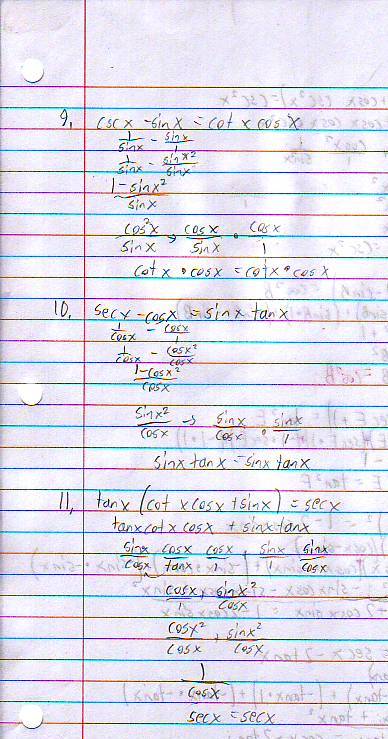 9. cscx - sinx = cotx cosx
1/sinx - sinx/1
1/sinx - sinx²/sinx
1-sinx²/sinx
cos²x/sinx → cosx/sinx • cosx/1
cotx • cosx = cotx • cosx
10. secx - cosx = sinx tanx
1/cosx - cosx/1
1/cosx - cosx²/cosx
1-cosx²/cosx
sinx²/cosx → sinx/cosx • sinx/1
sinx tanx = sinx tanx
11. tanx (cotx cosx + sinx) = secx
tanx cotx cosx + sinx tanx
cosx/1 + sinx²/cosx
cosx²/cosx + sinx²/cosx
1/cosx
secx = secx